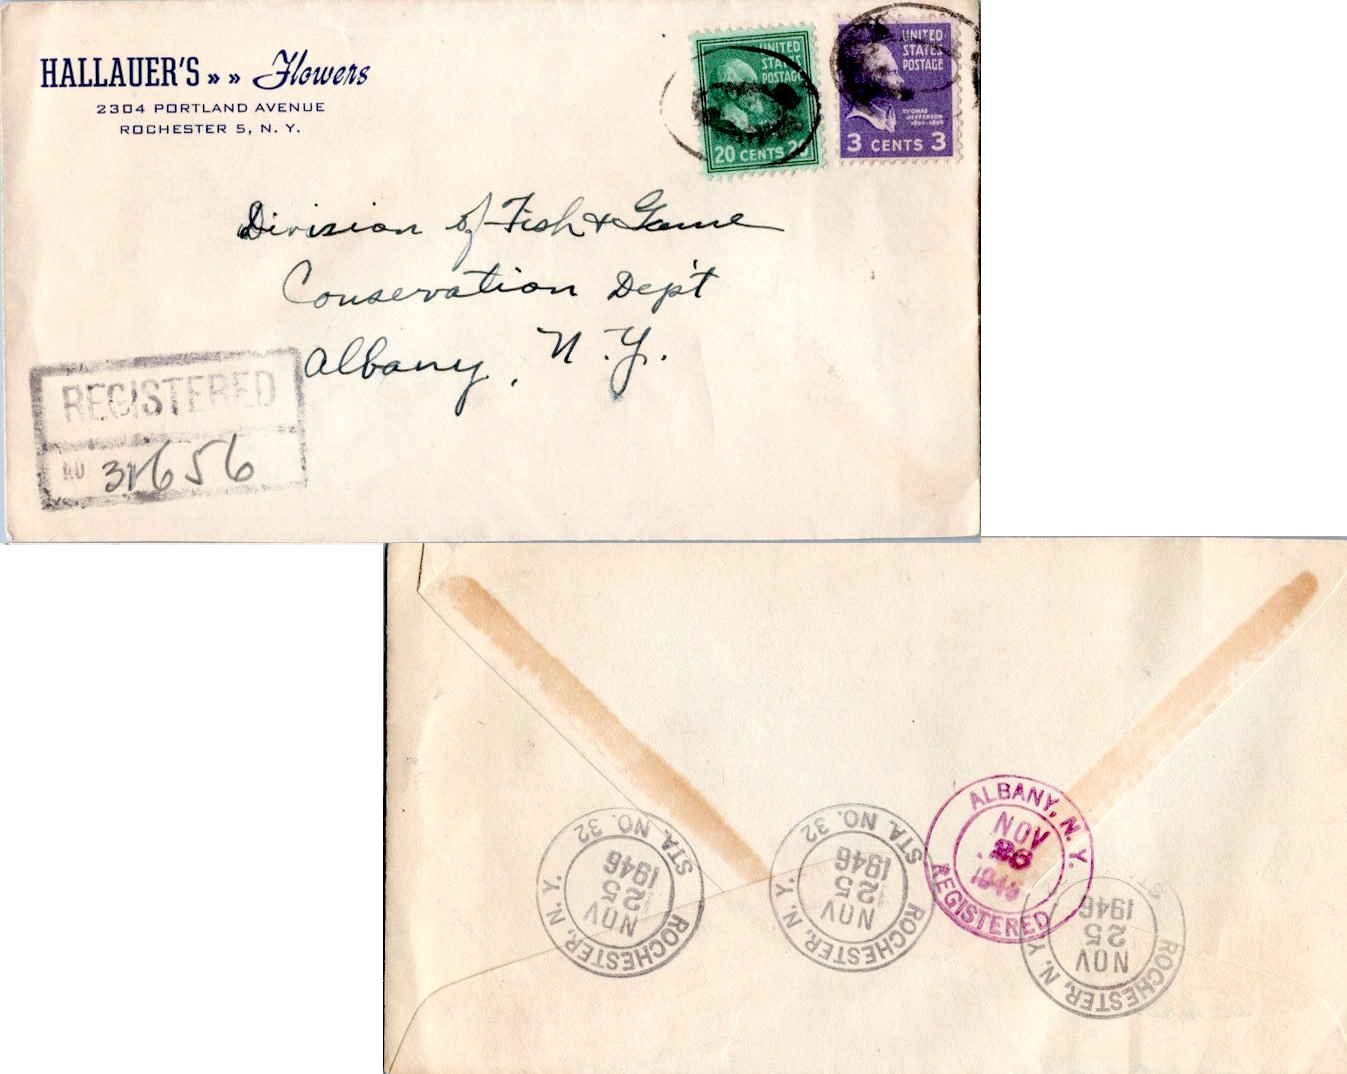 HALLAUER'S » » Flowers
2304 PORTLAND AVENUE
ROCHESTER 5, N. Y.
UNITED
STATES
POSTAGE
20 CENTS 20
UNITED
STATES
POSTAGE
THOMAS
JEFFERSON
3 CENTS 3
Division of Fish & Game
Conservation Dep't
Albany, N. Y.
REGISTERED
NO
ROCHESTER, N. Y. STA. NO. 32
NOV
25
1946
ROCHESTER, N. Y. STA. NO. 32
NOV
25
1946
ALBANY, N. Y.
NOV
26
1946
REGISTERED
ROCHESTER, N. Y. ST
NOV
25
1946